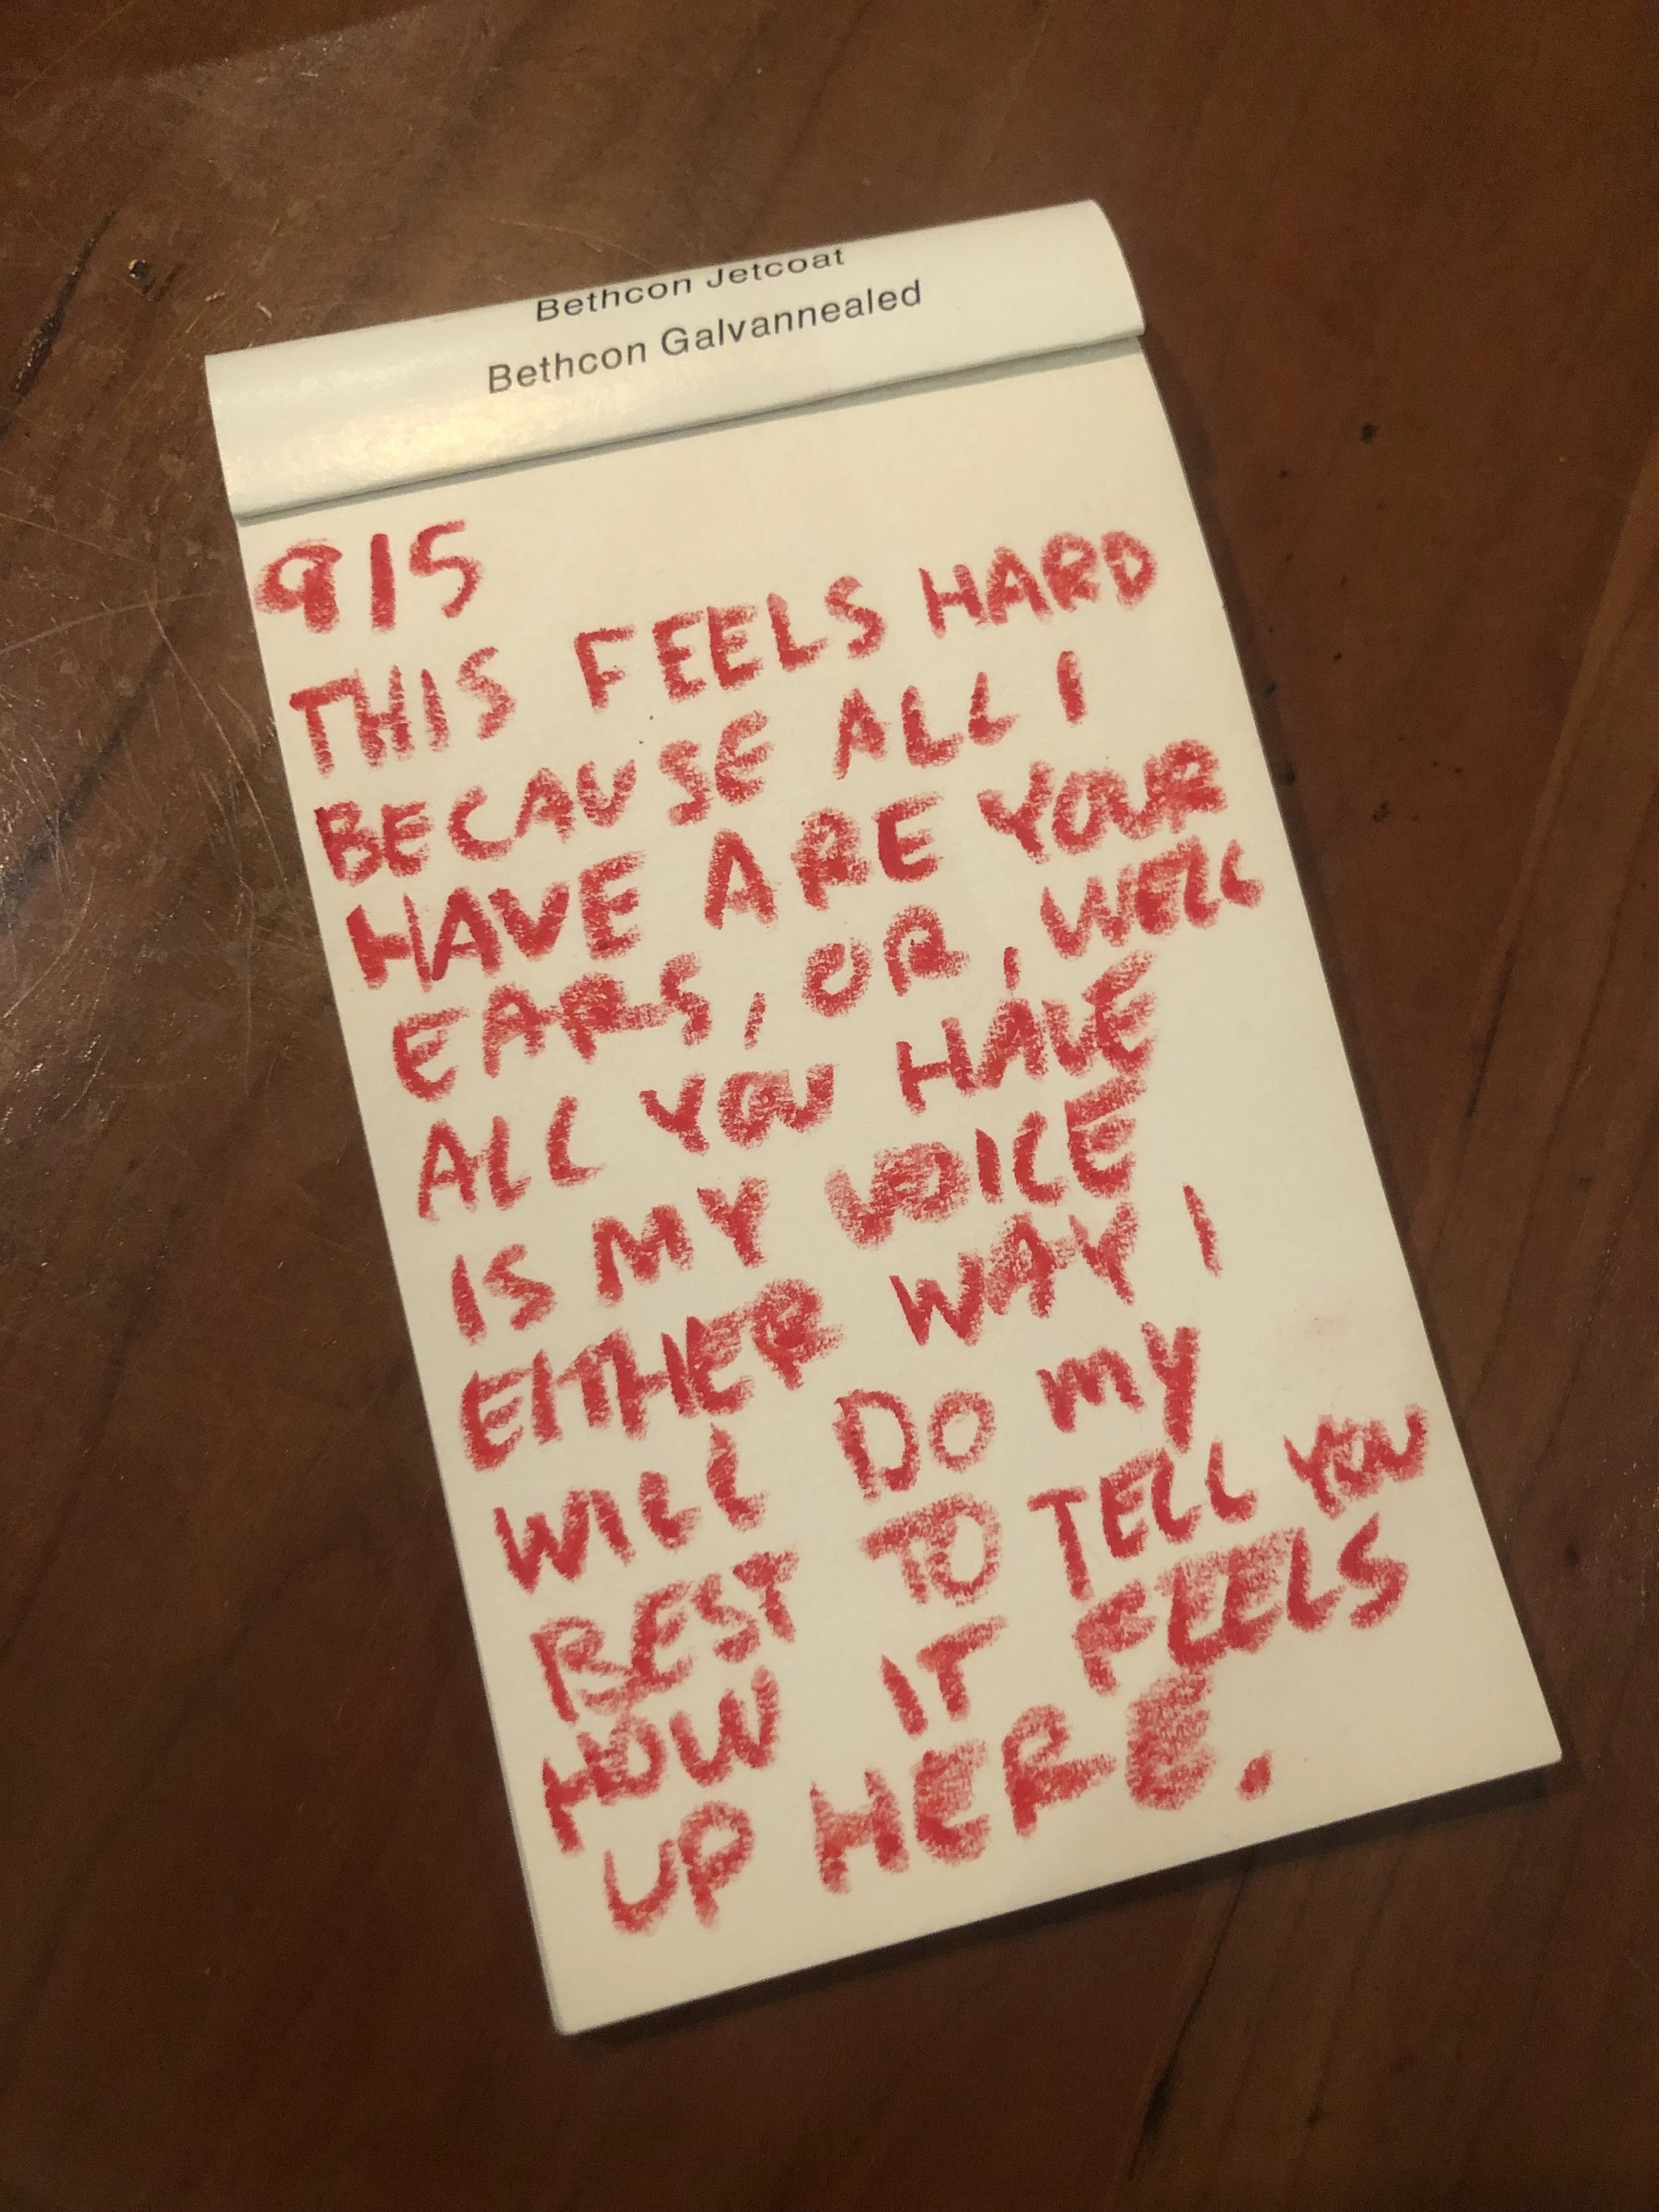 Bethcon Jetcoat
Bethcon Galvannealed
915
THIS FEELS HARD
BECAUSE ALL I
HAVE ARE YOUR
EARS, OR, WELL
ALL YOU HAVE
IS MY VOICE
EITHER WAY I
WILL DO MY
BEST TO TELL YOU
HOW IT FEELS
UP HERE.